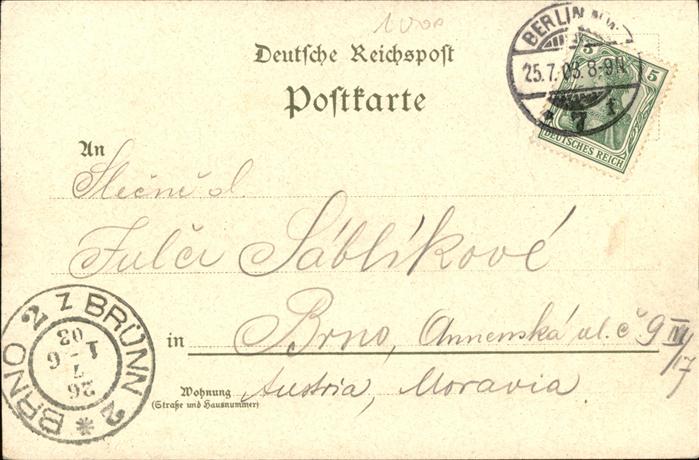 Deutsche Reichspost
Postkarte
BERLIN N.W.
25.7.03.8-9N
* 7 t
5 5
DEUTSCHES REICH
An
Slečně sl.
Julči Sáblíkové
in Brno, Annenská ul. č. 9
IV/17
Wohnung Austria, Moravia.
(Straße und Hausnummer)
BRNO 2 Z BRÜNN 2 *
26
7
1-6
03